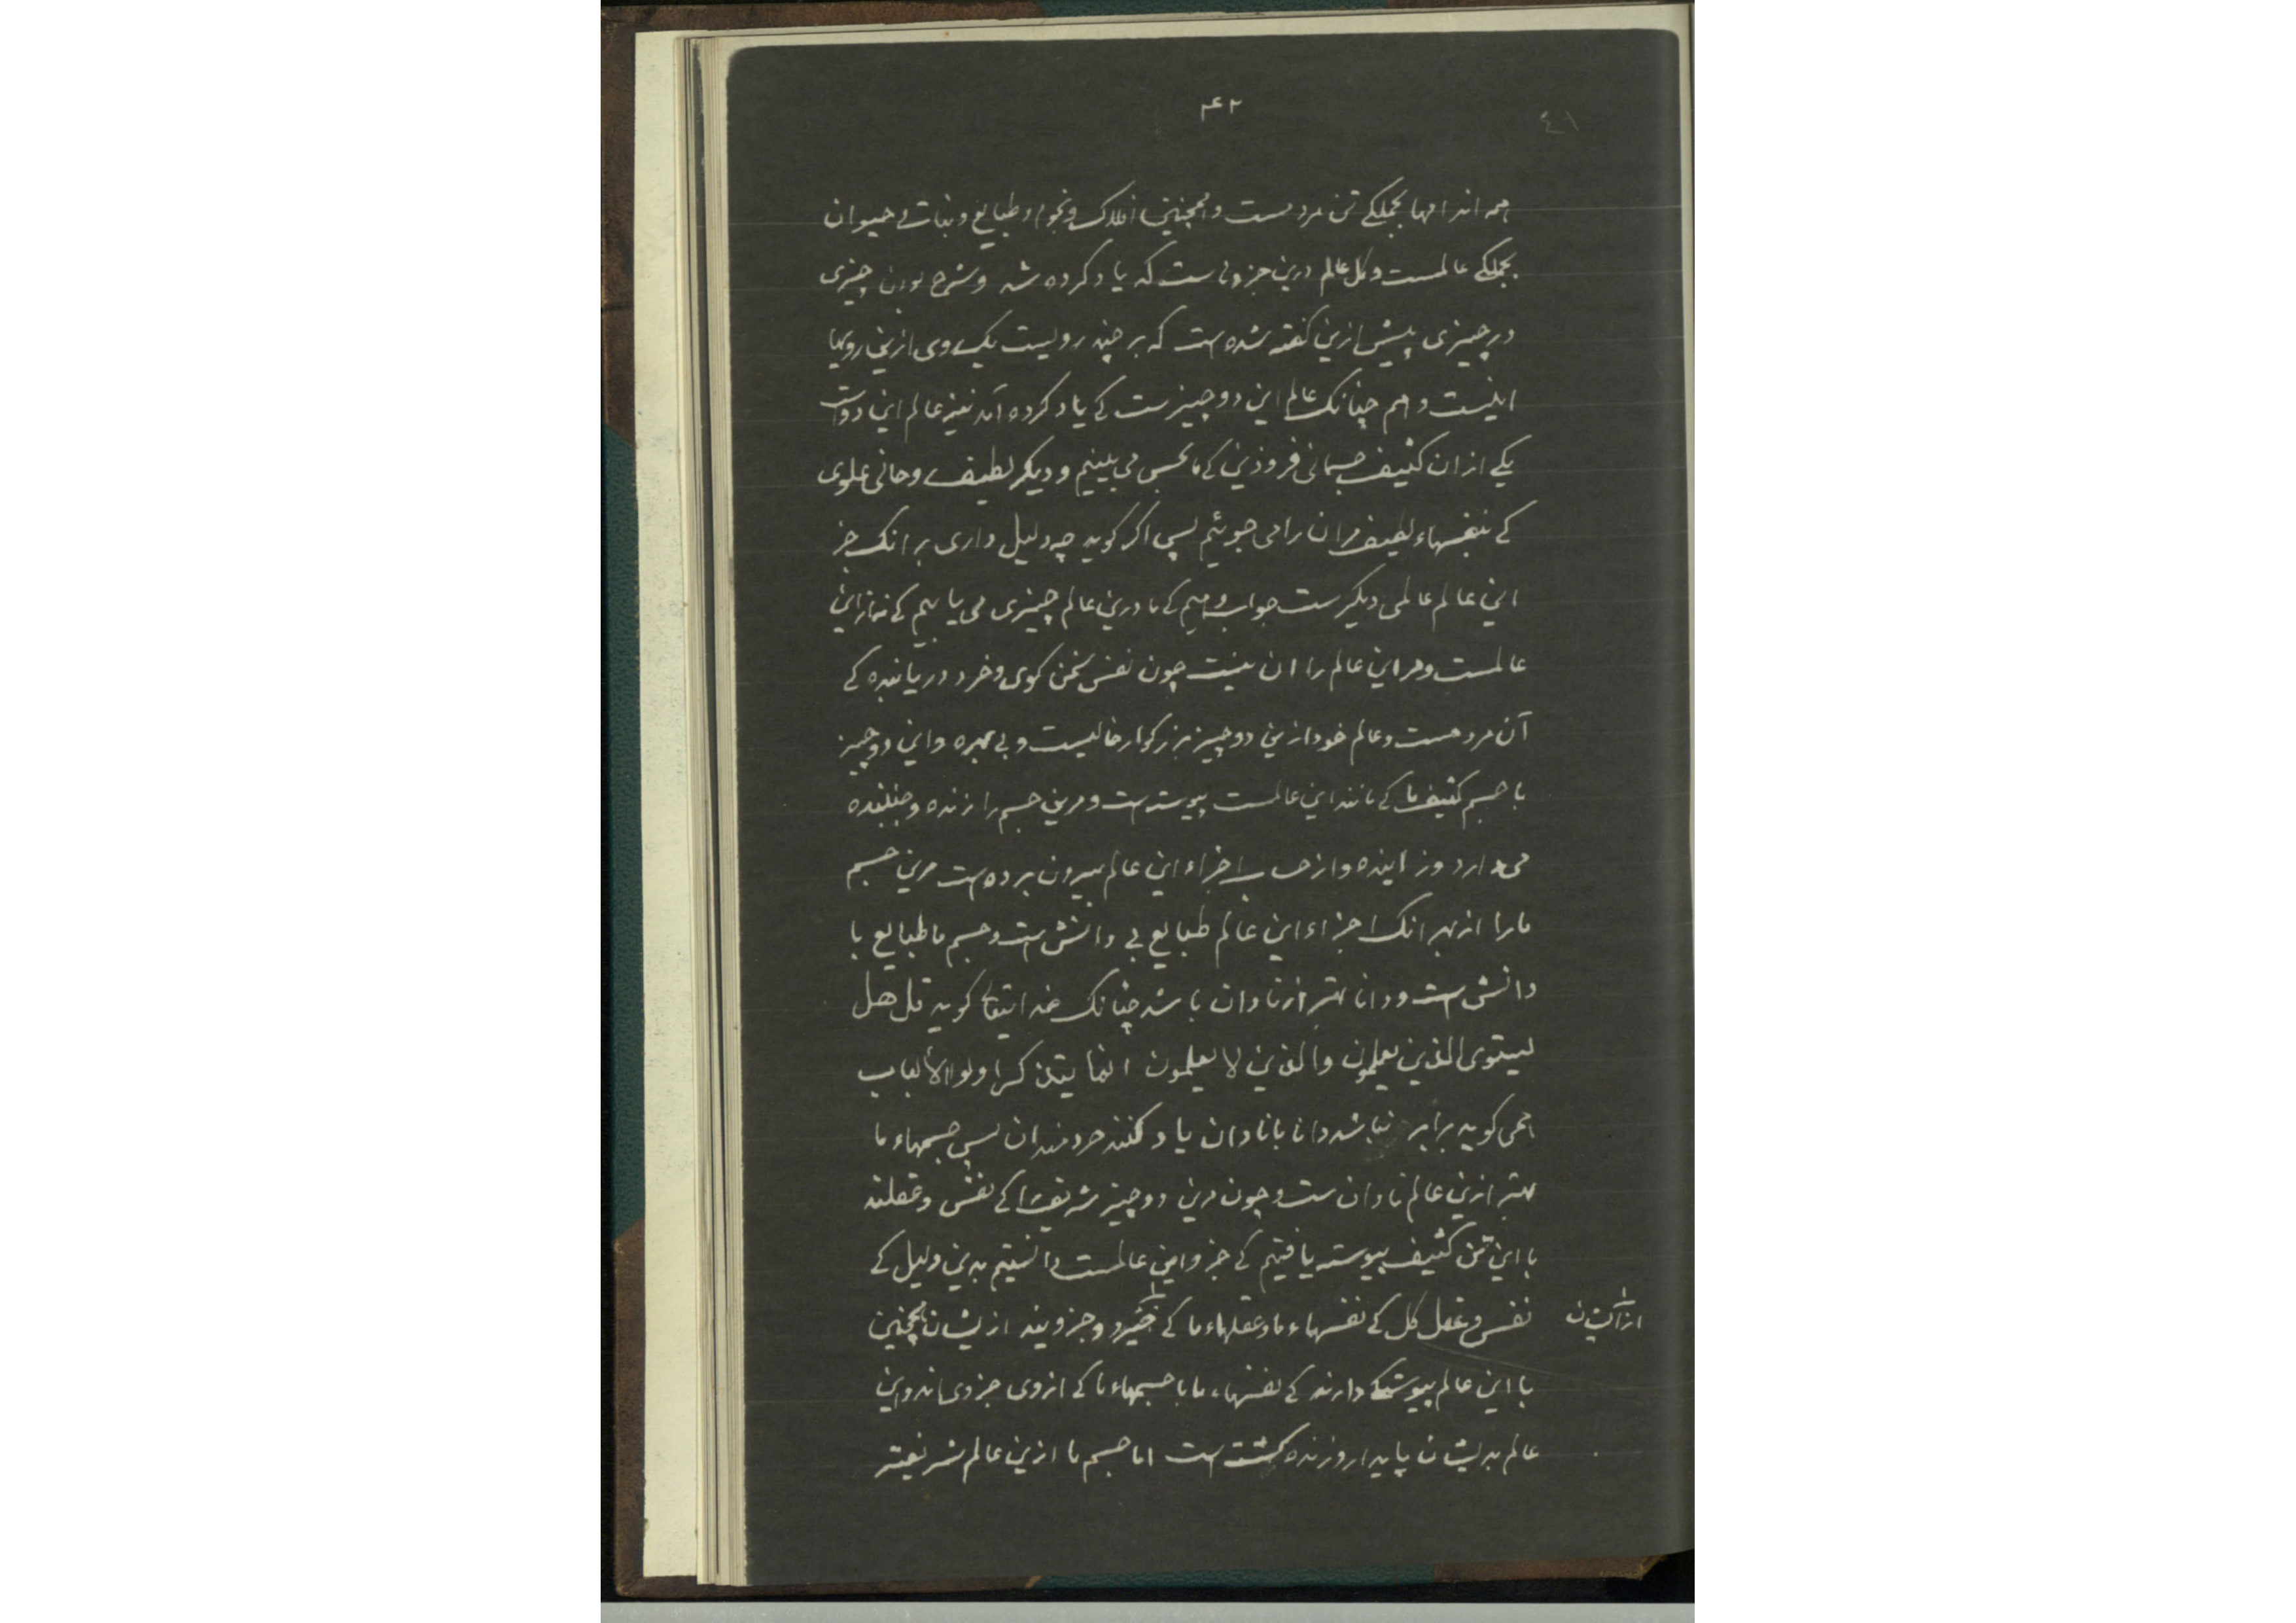 ۴۲
٤١
همه اندامها بجملگی تن مردمست و همچنین افلاک و نجوم و طبایع و نبات و حیوان
بجملگی عالمست و کل عالم درین جزوهاست که یاد کرده شد و شرح بودن چیزی
در چیزی پیش ازین گفته شده ست که بر چند رویست یک روی ازین رویها
اینست و هم چنانک عالم این دو چیزست کی یاد کرده آمد نیز عالم این دواست
یکی ازان کثیف جسمانی فروذین کی ما بحس می بینیم و دیگر لطیف روحانی علوی
کی بنفسهاء لطیف مران را می جوئیم پس اگر گوید چه دلیل داری بر انک جز
این عالم عالمی دیگرست جواب دهیم کی ما درین عالم چیزی می یابیم کی نه ازین
عالمست و مر این عالم را ان نیست چون نفس سخن گوی و خرد دریابنده کی
آن مردمست و عالم خود ازین دو چیز بزرگوار خالیست و بی بهره و این دو چیز
با جسم کثیف ما کی مانند این عالمست پیوسته ست و مرین جسم را زنده و جنبنده
می دارد و زاینده و از حساب اجزاء این عالم بیرون برده ست مرین جسم
ما را از بهر انک اجزاء این عالم طبایع بی دانش ست و جسم ما طبایع با
دانش ست و دانا بهتر از نادان باشد چنانک خدایتعالی گوید قل هل
یستوی الذین یعلمون والذین لا یعلمون انما یتذکر اولوا الألباب
همی گوید برابر نباشد دانا با نادان یاد کنند خردمندان پس جسمهاء ما
بهتر ازین عالم نادان ست و چون مرین دو چیز شریف را کی نفس و عقلند
با این تن کثیف پیوسته یافتیم کی جزو این عالمست دانستیم بدین دلیل کی
نفس و عقل کل کی نفسهاء ما و عقلهاء ما کی اثر و جزویند ازیشان همچنین
از ایشان
با این عالم پیوستگی دارند کی نفسهاء ما با جسمهاء ما کی ازوی جزوی اند و این
عالم بدیشان پایدار و زنده گشته ست اما جسم ما ازین عالم شریفتر